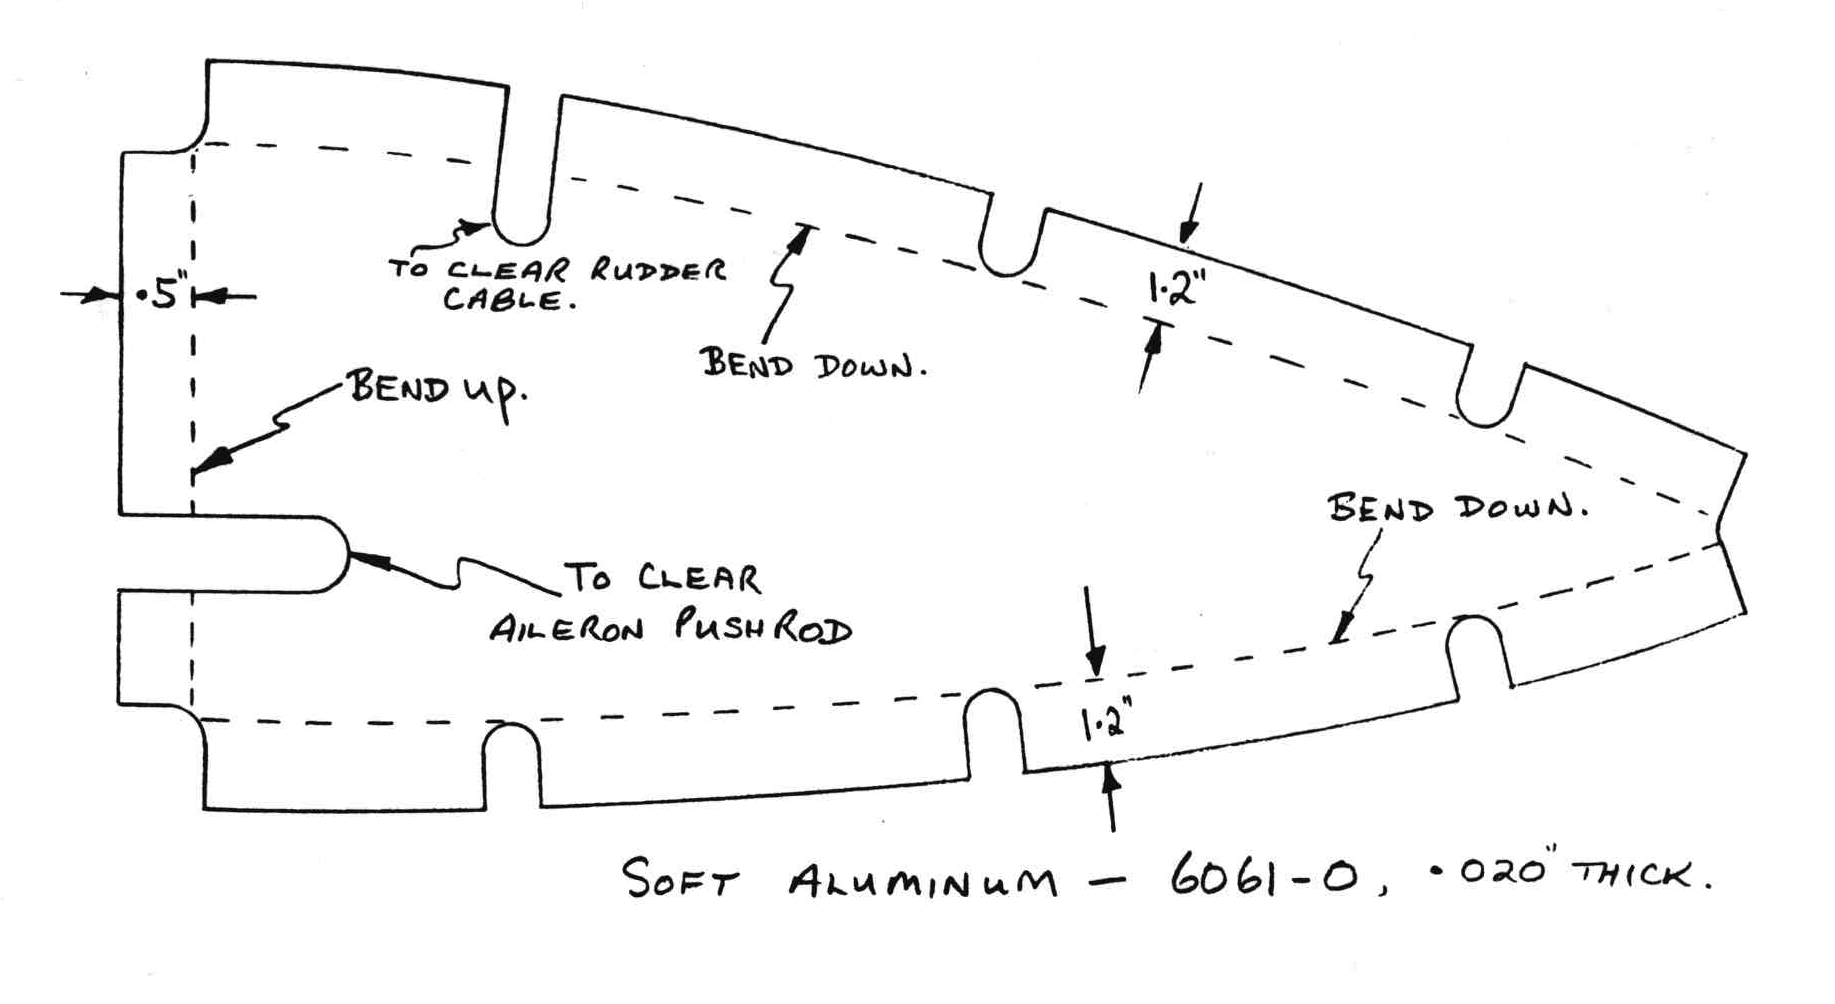 TO CLEAR RUDDER
CABLE.
.5"
BEND DOWN.
1.2"
BEND UP.
BEND DOWN.
TO CLEAR
AILERON PUSHROD
1.2"
SOFT ALUMINUM - 6061-O, .020" THICK.